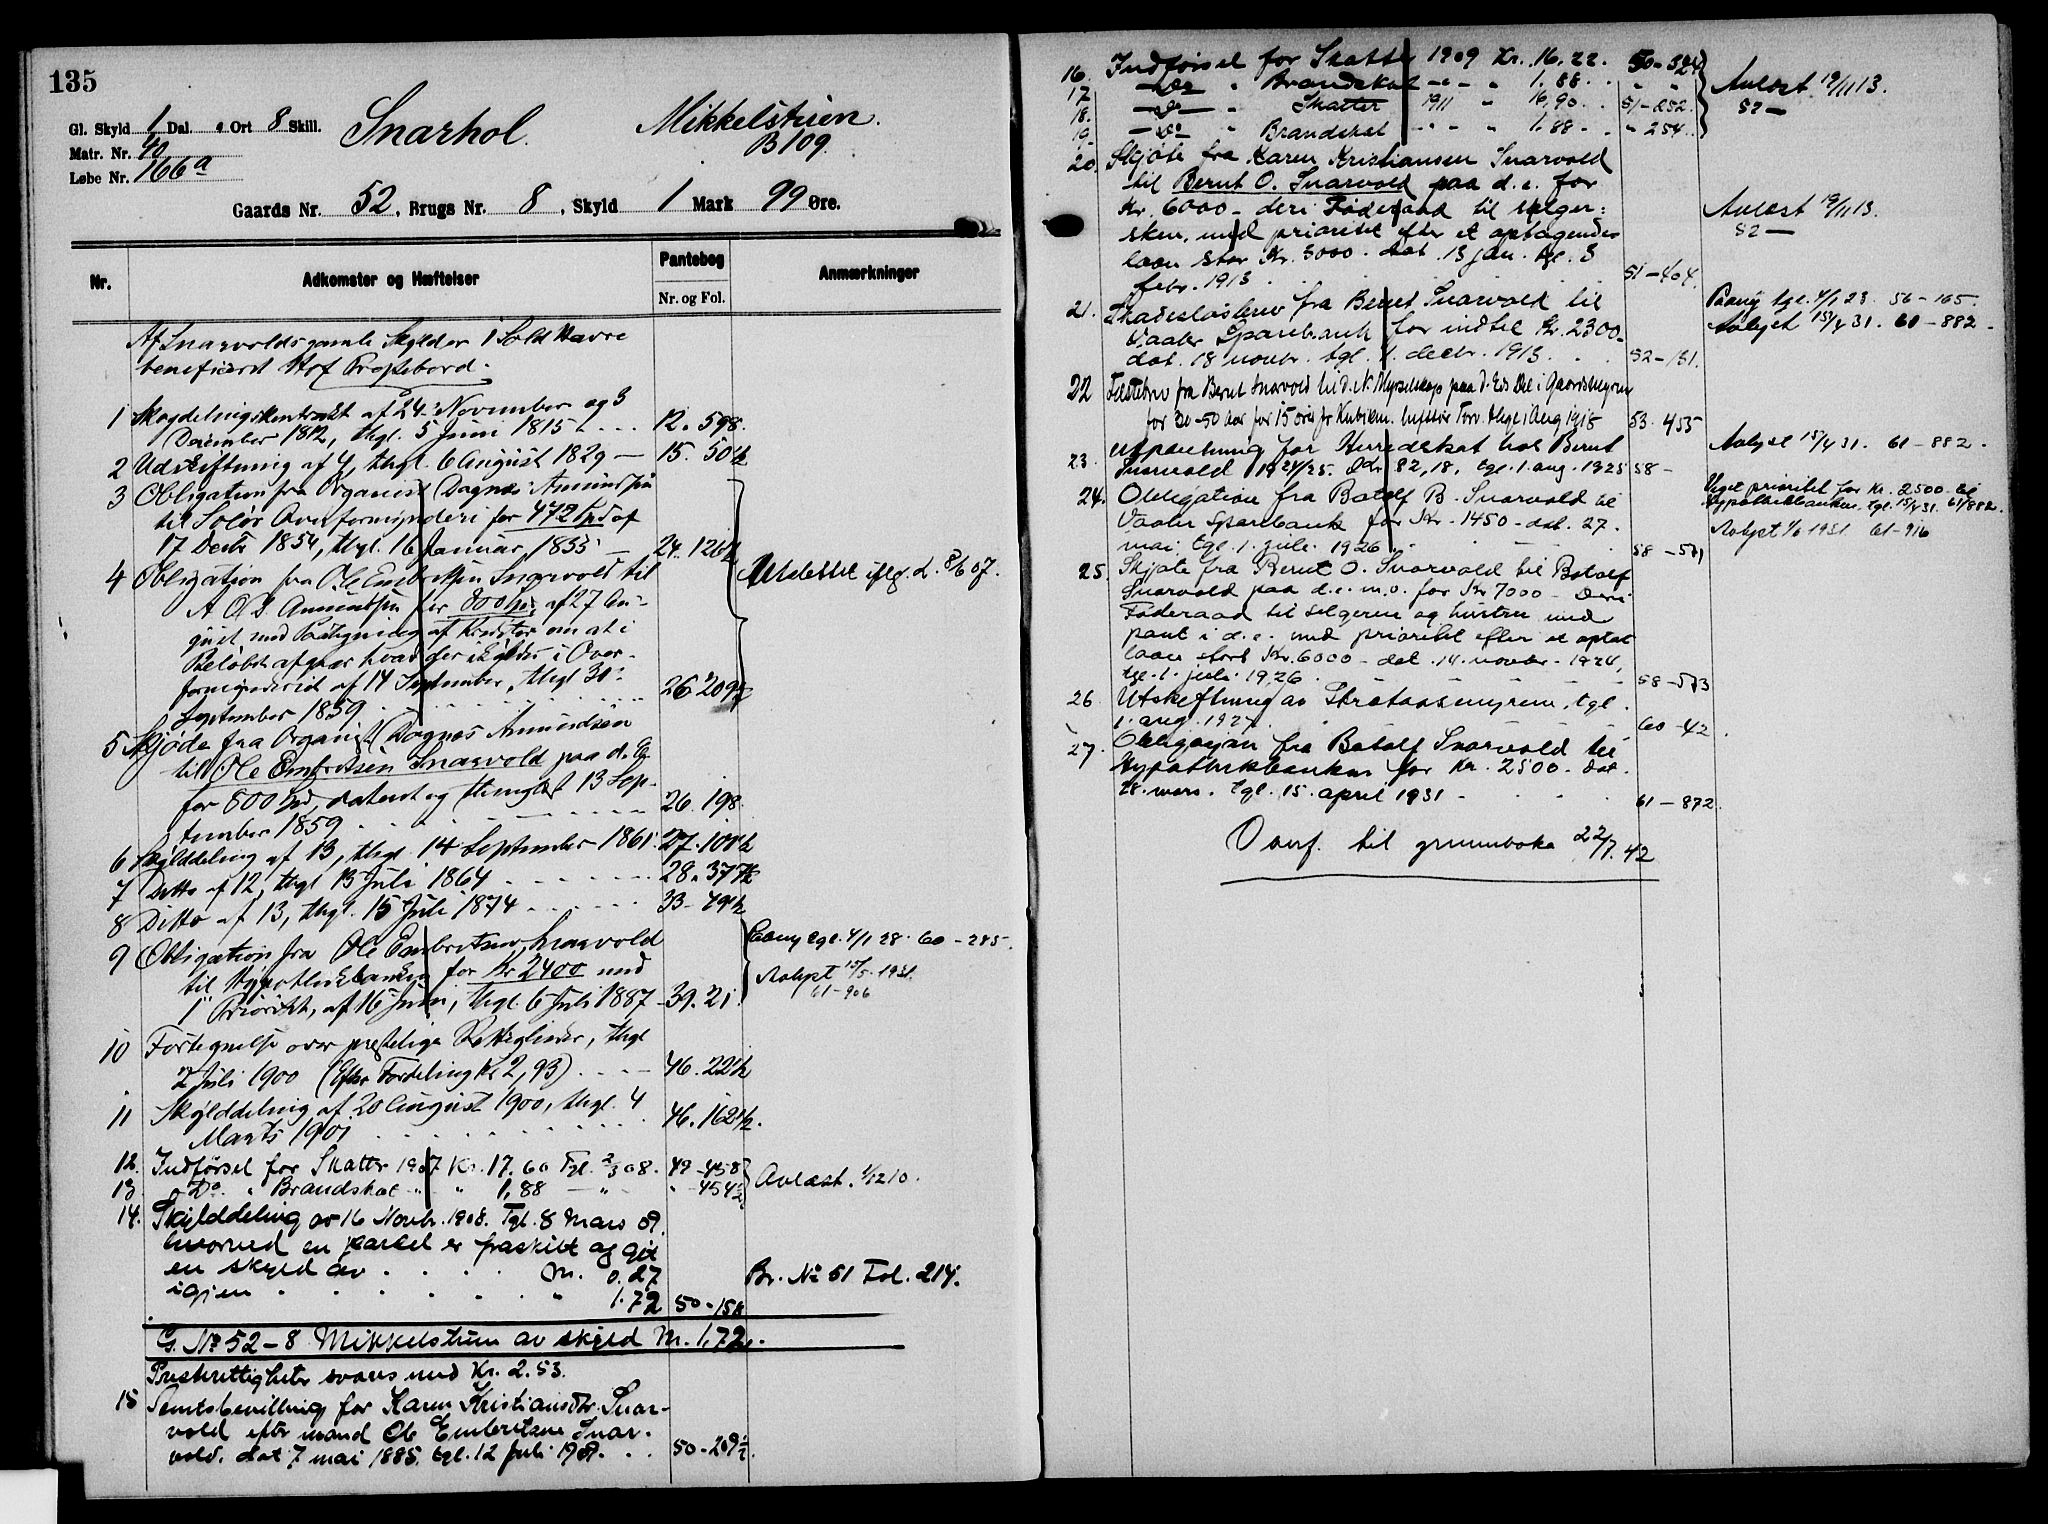 135
Gl. Skyld 1 Dal. " Ort 8 Skill.
Snarhol. Mikkelstuen.
Matr. Nr. 40
B 109.
Løbe Nr. 166a
Gaards Nr. 52, Brugs Nr. 8, Skyld 1 Mark 99 Øre.
Nr. Adkomster og Hæftelser Pantebog Nr. og Fol. Anmærkninger
Af Snarvolds gamle Skylder 1 Sold Havre
beneficeret Hof Præstebord.
1 Skogdelingskontrakt af 24. November og 3
December 1812, thgl. 5 Juni 1815 - - - 12. 598.
2 Udskiftning af 4, thgl. 6 August 1829 — 15. 50b
3 Obligation fra Organist Dagnæs Amundsen
til Solør Overformynderi for 472 Spd af
17 Decbr 1854, thgl. 16 Januar 1855 — 24. 126b
4 Obligation fra Ole Embretsen Snarvold til
A O D. Amundsen for 800 Spd, af 27 Au-
gust med Paategning af Kreditor om at i
Beløbet afgaar hvad der skyldes i Over-
formynderiet af 14 September, thgl 30.
September 1859 . . . 26. 209b
Udslettet iflg. d. 8/6 07.
5 Skjøde fra Organist Dagnæs Amundsen
til Ole Embretsen Snarvold paa d. E.
for 800 Spd, dateret og thinglæst 13 Sep-
tember 1859 . . . 26. 198.
6 Skylddeling af 13, thgl 14 September 1861. 27. 101b
7 Ditto af 12, thgl 13 Juli 1864 - - - 28. 377b
8 Ditto af 13, thgl. 15 Juli 1874 - - - 33. 49b
9 Obligation fra Ole Embretsen Snarvold
til Hypothekbanken for Kr 2400 med
1ste Prioritet, af 16 Juni, thgl. 6 Juli 1887 - 39. 21.
Paany tgl. 4/1 28. 60 - 285.
Avlyst 15/5. 1931.
61-906
10 Fortegnelse over prestelige Rettigheder, thgl
2 Juli 1900 (Efter Fordeling Kr 2,93) . - - - 46. 22b
11 Skylddeling af 20 August 1900, thgl. 4
Marts 1901 . . . 46. 162b.
12. Indførsel for Skatter 1907 Kr. 17.60 Tgl. 2/3 08. 49 - 458
13. Do. " Brandskat " " 1,88 — " - " - 454½
Avlæst. 1/12 10.
14. Skylddeling av 16 Novbr. 1908. Tgl. 8 Mars 09.
hvorved en parcel er fraskilt og git
en skyld av . . . M. 0.27 Br. No 51 Fol. 214.
igjen . . . " 1.72 50 - 15b
G. No 52 - 8 Mikkelstuen av skyld M. 1.72.
Presterettigheter svares med Kr. 2.53.
15 Amtsbevilling for Karen Kristiansdtr. Snar-
vold efter mand Ole Embretsen Snar-
vold. dat 7 mai 1885. tgl. 12 Juli 1909. . . 50 - 209½.
16. Indførsel for Skatter 1909 Kr. 16.22. 50 - 324
17 — Do — " Brandskat " - " 1.88. . " "
18. — Do — " Skatter 1911 " 16.90. . 51 - 252.
19. — Do " Brandskat " " " 1.88. . " 254.
Avlæst 19/11 13.
52 —
20. Skjøte fra Karen Kristiansen Snarvold
til Bernt O. Snarvold paa d.e. for
Kr. 6000 - deri Føderaad til sælger:
sken, med prioritet efter et optagendes
laan stor Kr. 3000. dat. 13 jan. tgl. 3
febr. 1913 . . . 51 - 404.
Avlæst 19/11 13.
52 —
21. Skadesløsbrev fra Bernt Snarvold til
Vaaler Sparebank for indtil Kr. 2300.
dat. 18 novbr. tgl. 1. decbr. 1913. . . 52 - 131.
Paany tgl. 4/1 23. 56 - 165.
Avlyst 15/4 31. 61 - 882 -
22 Fæstebrev fra Bernt Snarvold til d. N. Myrselskap paa d. Eds Del i Gaardsmyren
for 30-50 Aar for 15 øre pr Kubikm. lufttør Torv. thgl 1 Aug 1915 53. 455
23. Utpantning for Herredskat hos Bernt
Snarvold 1924/25. Kr. 82,18. tgl. 1. aug. 1925 58 -
Avlyst 15/4 31. 61 - 882.
24. Obligation fra Botolf B. Snarvold til
Vaaler Sparebank for Kr. 1450 - dat. 27.
mai, tgl. 1. juli 1926 . . . 58 - 571
Veget prioritet for Kr. 2500 - til
Hypothekbanken. tgl. 15/4 31. 61/882.
Avlyst 1/6 1931 61 - 916
25. Skjøte fra Bernt O. Snarvold til Botolf
Snarvold paa d.e. m.v. for Kr 7000 - Deri
Føderaad til selgeren og hustru med
pant i d.e. med prioritet efter et optat
laan stort Kr. 6000 - dat. 14. novbr. 1924,
tgl. 1. juli 1926. 58 - 573
26. Utskiftning av Strætaasmyrene, tgl.
1. aug. 1927. 60 - 42.
27. Obligasjon fra Botolf Snarvold til
Hypothekbanken for Kr. 2500 - dat.
18. mars. tgl. 15. april 1931 - . . . 61 - 872.
Overf. til grunnboka 22/7. 42